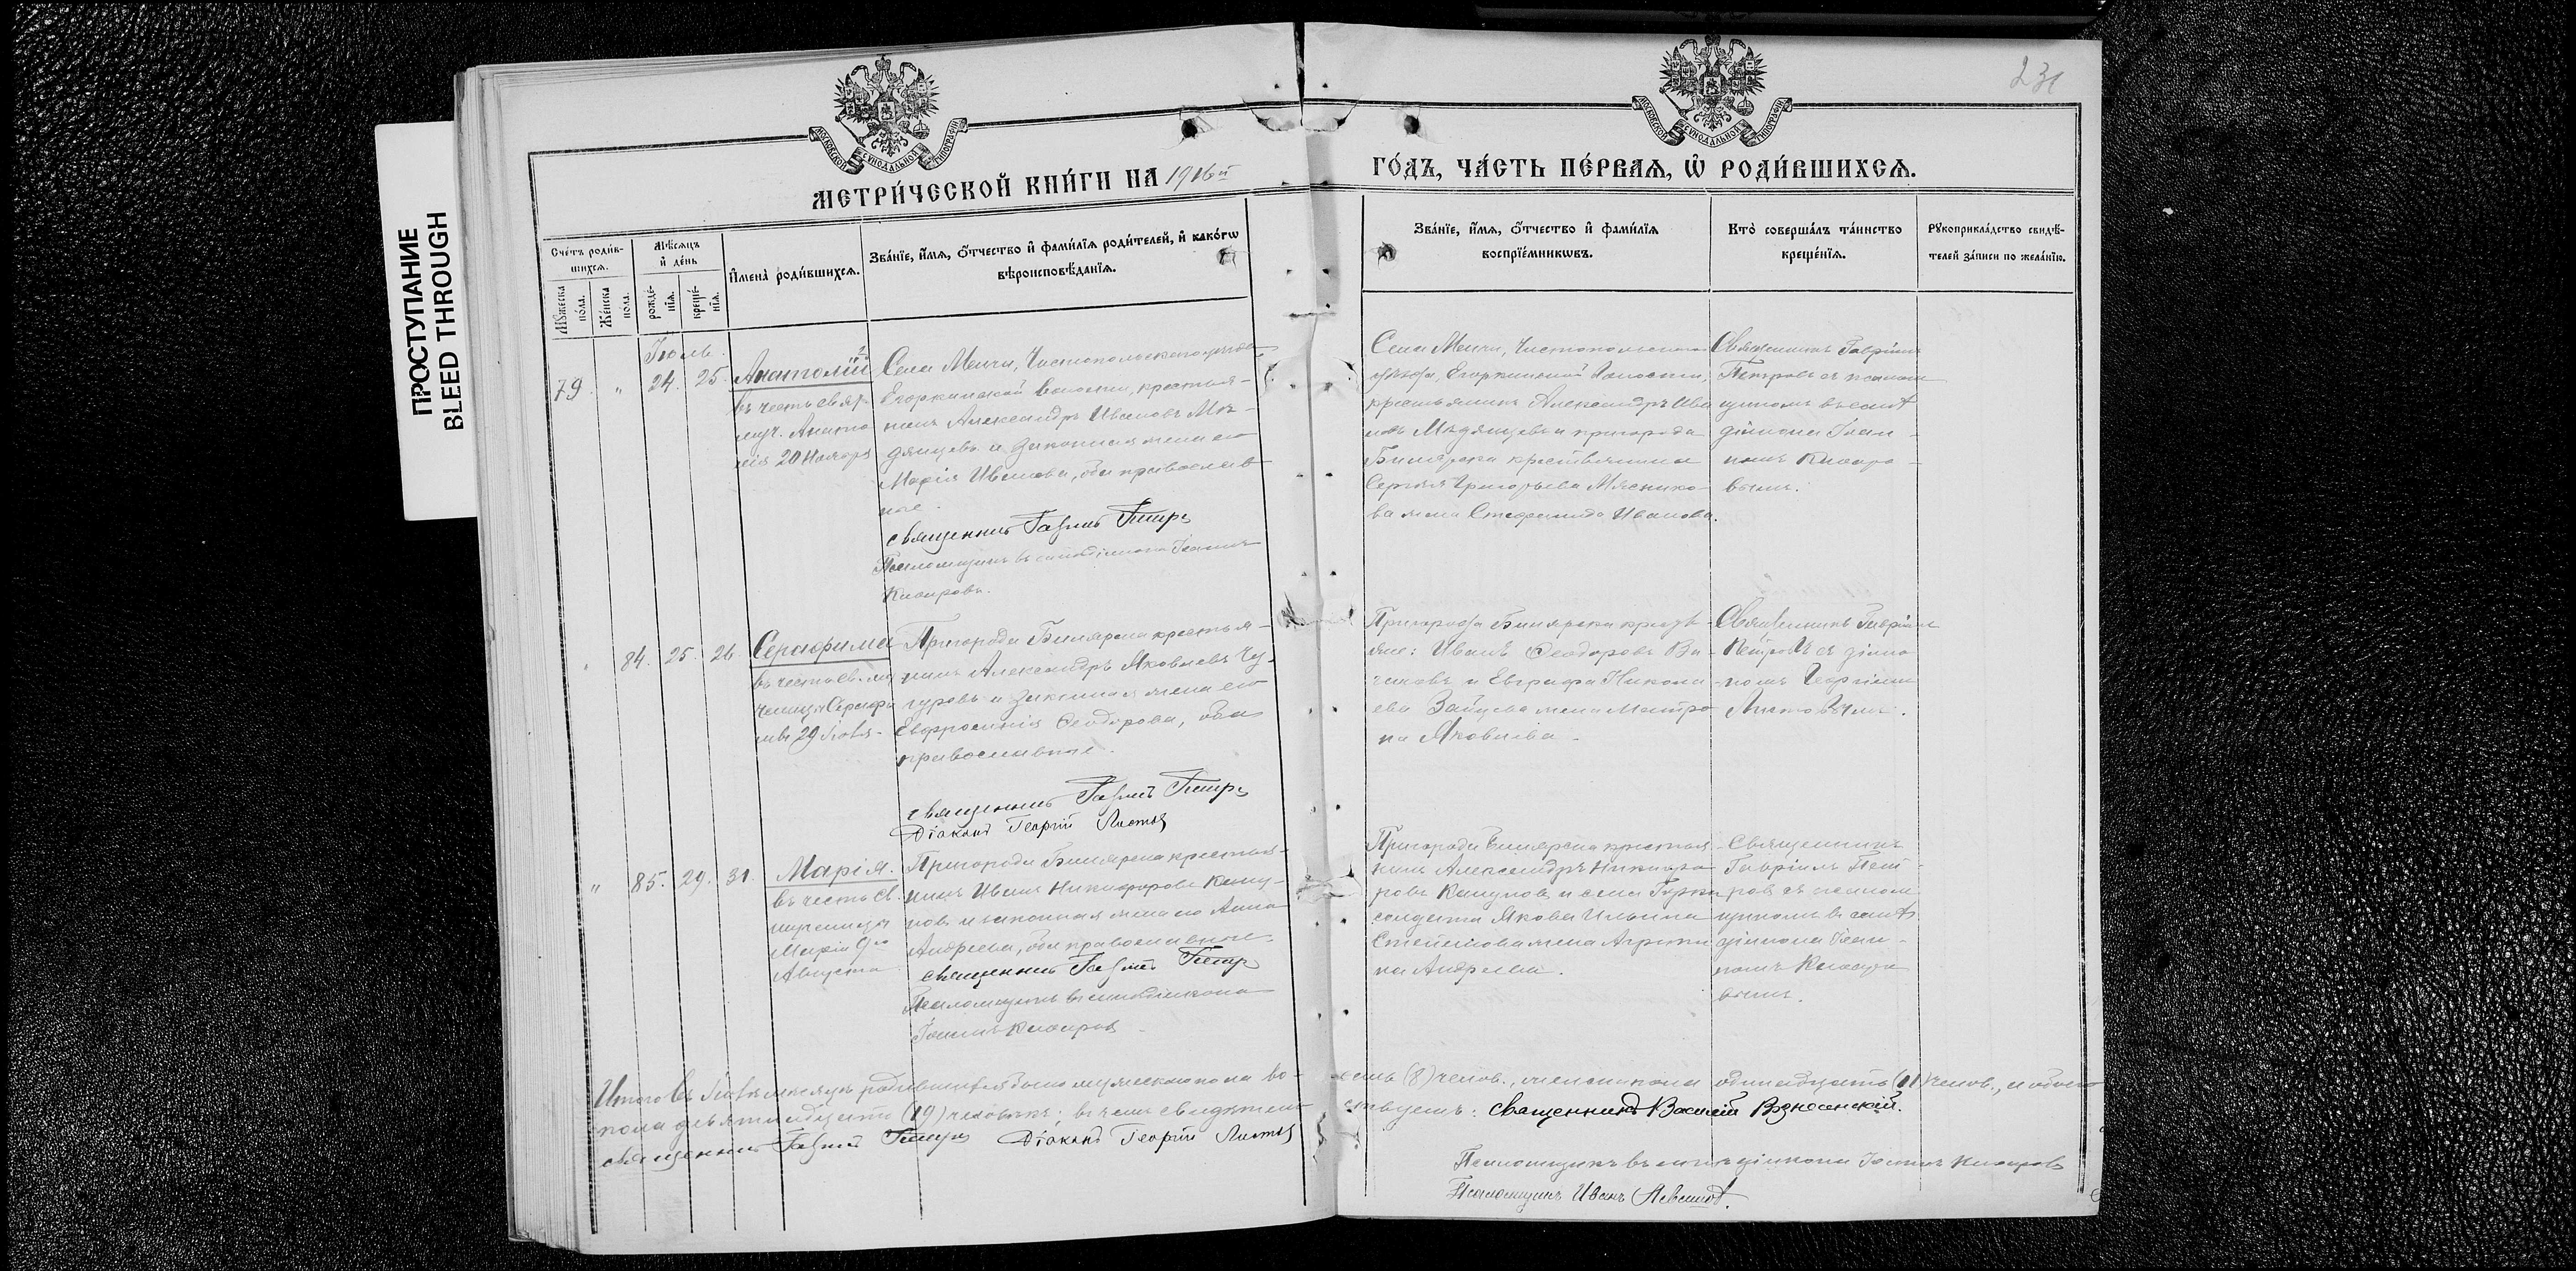 ПРОСТУПАНИЕ
BLEED THROUGH
231
МОСКОВСКОЙ СѴНОДАЛЬНОЙ ТИПОГРАФІИ
МОСКОВСКОЙ СѴНОДАЛЬНОЙ ТИПОГРАФІИ
МЕТРИ́ЧЕСКОЙ КНИ́ГИ НА 1916й
ГО́ДЪ, ЧА́СТЬ ПЕ́РВАѦ, Ѡ҆ РОДИ́ВШИХСѦ.
Сче́тъ роди́в-
шихсѧ.
Мꙋ́жеска по́ла.
Же́нска по́ла.
Мѣ́сѧцъ
и҆ де́нь
рожде́-
нїѧ.
креще́-
нїѧ.
И҆мена̀ роди́вшихсѧ.
Зва́нїе, и҆́мѧ, ѻ҆́тчество и҆ фами́лїѧ роди́телей, и҆ како́гѡ
вѣроисповѣ́данїѧ.
Зва́нїе, и҆́мѧ, ѻ҆́тчество и҆ фами́лїѧ
воспрїе́мникѡвъ.
Кто̀ соверша́лъ та́инство
креще́нїѧ.
Рꙋкоприкла́дство свидѣ́-
телей за́писи по жела́нїю.
Іюль.
79. " 24. 25. Анатолій
въ честь свят.
муч. Анато
лія 20 Ноября
Села Менчи, Чистопольскаго уѣзда,
Егоркинской волости, крестья-
нинъ Александръ Ивановъ Мѣ-
дянцевъ и законная жена его
Марія Иванова, оба православ
ные.
священникъ Гавріилъ Петровъ
Псаломщикъ въ санѣ діакона Іоаннъ
Кипировъ.
Села Менчи, Чистопольскаго
уѣзда, Егоркинской волости,
крестьянинъ Александръ Ива
новъ Мѣдянцевъ и пригорода
Билярска крестьянина
Сергѣя Григорьева Мяснико-
ва жена Стефанида Иванова.
Священникъ Гавріилъ
Петровъ съ псалом
щикомъ въ санѣ
діакона Іоан-
номъ Кипиро-
вымъ.
" 84. 25. 26. Серафима
въ честь св. му
ченицы Серафи
мы 29 Іюля.
Пригорода Билярска крестья-
нинъ Александръ Яковлевъ Чу-
гуровъ и законная жена его
Евфросинія Ѳеодорова, оба
православные.
священникъ Гавріилъ Петровъ
Діаконъ Георгій Листовъ
Пригорода Билярска кресть-
яне: Иванъ Ѳеодоровъ
и Евграфа Никола-
ева Зайцева жена Матро
на Яковлева.
Священникъ Гавріилъ
Петровъ съ діако
номъ Георгіемъ
Листовымъ.
" 85. 29. 31. Марія.
въ честь св.
мученицы
Маріи 9го
Августа
Пригорода Билярска крестья-
нинъ Иванъ Никифоровъ Кашу-
новъ и законная жена его Анна
Андреева, оба православные.
священникъ Гавріилъ Петровъ
Псаломщикъ въ санѣ діакона
Іоаннъ Кипировъ
Пригорода Билярска крестья-
нинъ Александръ Никифо
ровъ Кашуновъ и села
солдата Якова Ильина
Степанова жена Агрипи
на Андреева.
Священникъ
Гавріилъ Пет-
ровъ съ псалом
щикомъ въ санѣ
діакона Іоан-
номъ Кипиро
вымъ.
Итого въ Іюлѣ мѣсяцѣ родившихся было мужескаго пола во-семь (8) челов., женскаго пола одинадцать (11) челов., и обоего
пола девятнадцать (19) человѣкъ: въ чемъ свидѣтель-ствуемъ: Священникъ Василій Вознесенскій.
священникъ Гавріилъ Петровъ Діаконъ Георгій Листовъ
Псаломщикъ въ санѣ діакона Іоаннъ Кипировъ
Псаломщикъ Иванъ